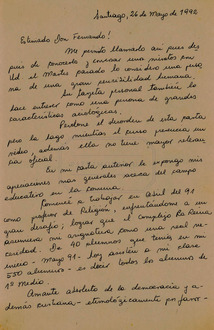 Santiago, 26 de Mayo de 1992
Estimado Don Fernando!
Me siento llamado así pues des
pués de conocerlo y conversar unos minutos con
Ud. el Martes pasado lo considero una perso
na de una gran sensibilidad humana.
Su tarjeta personal también lo
hace entrever como una persona de grandes
características axiológicas.
Perdone el desorden de esta carta
pero la hago mientras el curso produce un
video, además ella no tiene mayor relevan
cia oficial.
En mi carta anterior le expongo mis
apreciaciones más generales acerca del campo
educativo en la comuna.
Comencé a trabajar en Abril del 91
como profesor de Religión, enfrentándome a un
gran desafío; lograr que el Complejo La Reina
asumiera mi asignatura como una real ne
cesidad. De 40 alumnos que tenía en mi
inicio - Mayo 91 - hoy asisten a mi clase
550 alumnos - es decir todos los alumnos de
1º Medio -.
Amante absoluto de la democracia y a-
demás cristiano - etimológicamente por favor -